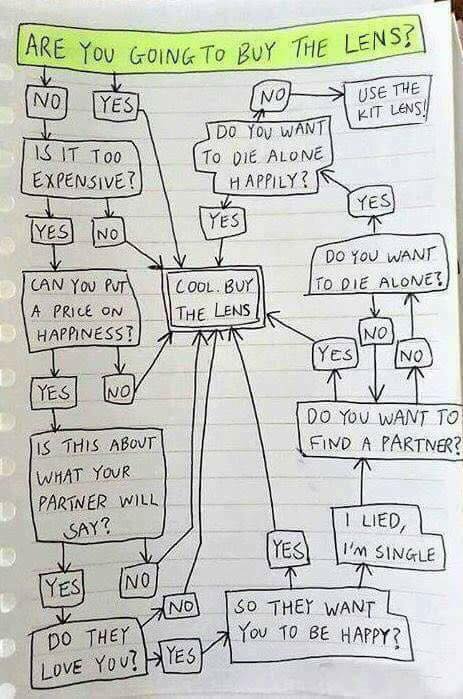 ARE YOU GOING TO BUY THE LENS?
NO
YES
NO
USE THE
KIT LENS!
IS IT TOO
EXPENSIVE?
DO YOU WANT
TO DIE ALONE
HAPPILY?
YES
NO
YES
YES
CAN YOU PUT
A PRICE ON
HAPPINESS?
COOL. BUY
THE LENS
DO YOU WANT
TO DIE ALONE?
YES
NO
YES
NO
NO
IS THIS ABOUT
WHAT YOUR
PARTNER WILL
SAY?
DO YOU WANT TO
FIND A PARTNER?
YES
NO
YES
I LIED,
I'M SINGLE
DO THEY
LOVE YOU?
NO
YES
SO THEY WANT
YOU TO BE HAPPY?